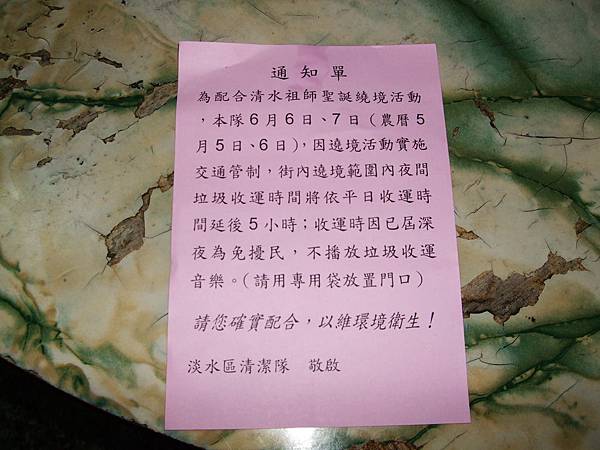 通知單
為配合清水祖師聖誕繞境活動
，本隊6月6日、7日（農曆5
月5日、6日），因遶境活動實施
交通管制，街內遶境範圍內夜間
垃圾收運時間將依平日收運時
間延後5小時；收運時因已屆深
夜為免擾民，不播放垃圾收運
音樂。（請用專用袋放置門口）
請您確實配合，以維環境衛生！
淡水區清潔隊　敬啟